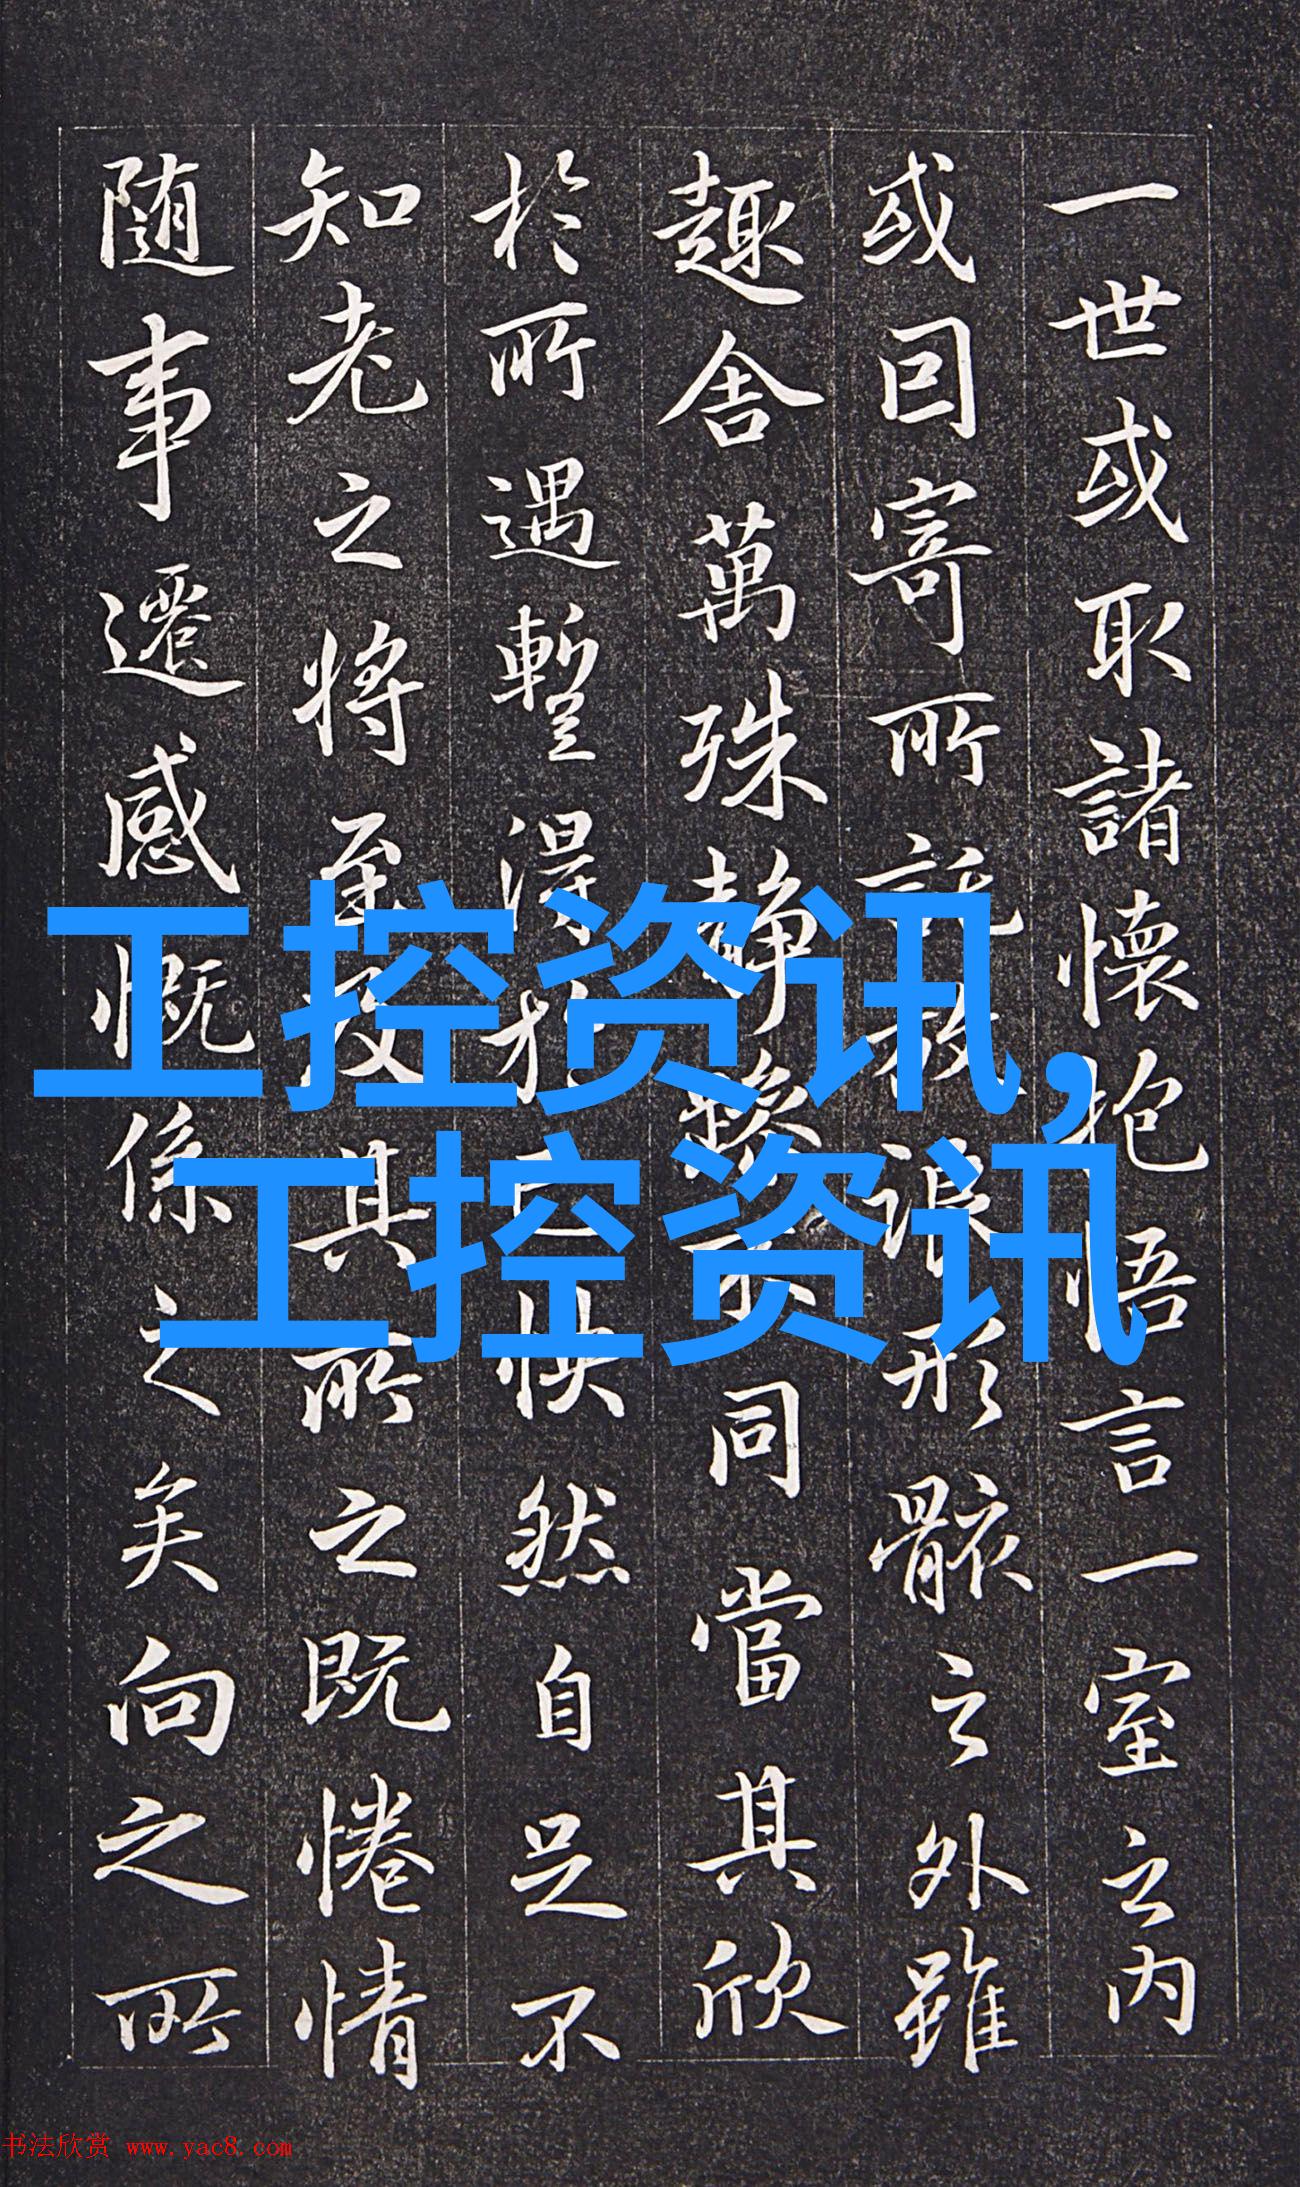 一世或取諸懷抱悟言一室之内
或因寄所託放浪形骸之外雖
趣舍萬殊静躁不同當其欣
於所遇暫得於己快然自足不
知老之將至及其所之既惓情
随事遷感慨係之矣向之所
工控资讯,
工控资讯
书法欣赏 www.yac8.com